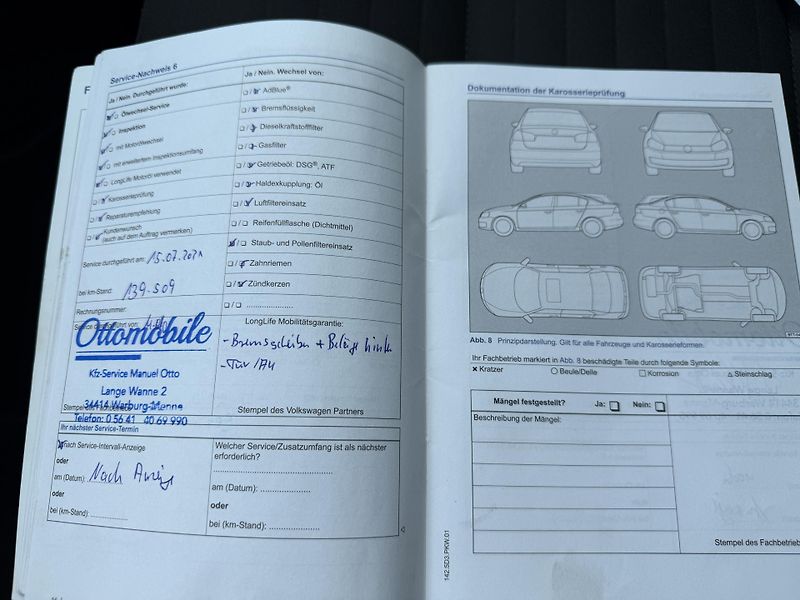 Service-Nachweis 6
Ja / Nein. Durchgeführt wurde:
Ölwechsel-Service
Inspektion
mit Motorölwechsel
mit erweitertem Inspektionsumfang
LongLife Motoröl verwendet
Karosserieprüfung
Reparaturempfehlung
Kundenwunsch
(auch auf dem Auftrag vermerken)
Service durchgeführt am: 15.07.2021
bei km-Stand: 139.509
Rechnungsnummer:
Ottomobile
Kfz-Service Manuel Otto
Lange Wanne 2
34414 Warburg-Menne
Telefon: 0 56 41 40 69 990
Ja / Nein. Wechsel von:
AdBlue®
Bremsflüssigkeit
Dieselkraftstofffilter
Gasfilter
Getriebeöl: DSG®, ATF
Haldexkupplung: Öl
Luftfiltereinsatz
Reifenfüllflasche (Dichtmittel)
Staub- und Pollenfiltereinsatz
Zahnriemen
Zündkerzen
LongLife Mobilitätsgarantie:
- Bremsscheiben + Beläge hinten
- TÜV/AU
Stempel des Volkswagen Partners
Ihr nächster Service-Termin
nach Service-Intervall-Anzeige
oder
am (Datum): Nach Anzeige
oder
bei (km-Stand):
Welcher Service/Zusatzumfang ist als nächster
erforderlich?
am (Datum):
oder
bei (km-Stand):
Dokumentation der Karosserieprüfung
Abb. 8 Prinzipdarstellung. Gilt für alle Fahrzeuge und Karosserieformen.
Ihr Fachbetrieb markiert in Abb. 8 beschädigte Teile durch folgende Symbole:
× Kratzer ○ Beule/Delle □ Korrosion △ Steinschlag
Mängel festgestellt? Ja: Nein:
Beschreibung der Mängel:
Stempel des Fachbetriebs
142.5D3.PKW.01